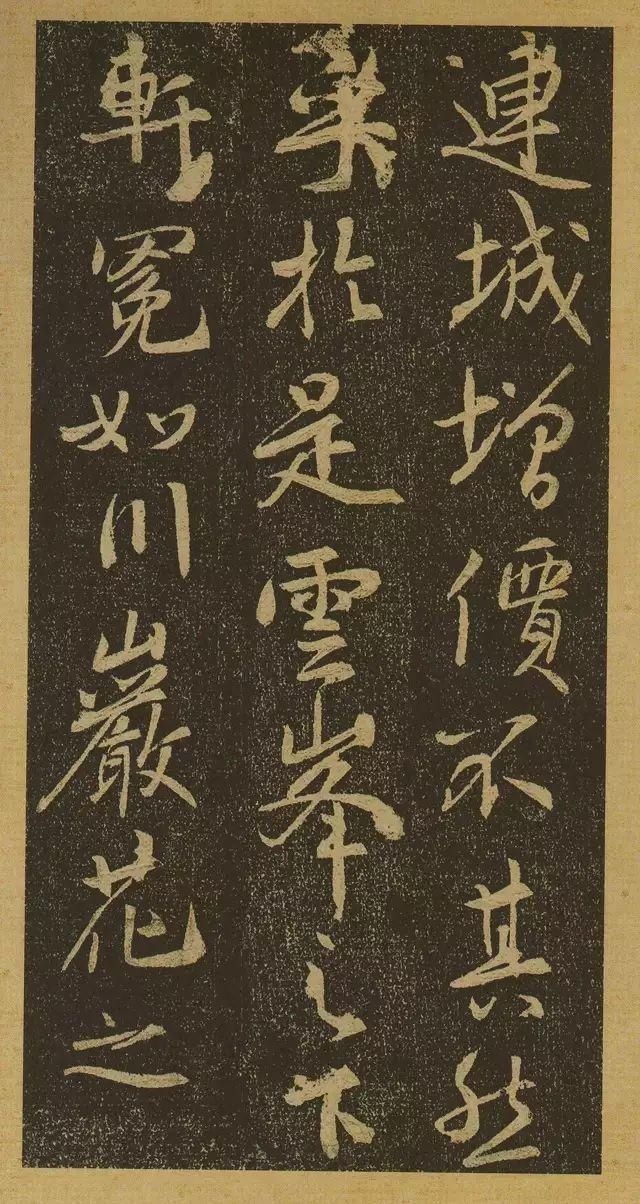 連城增價不其然
乘於是雲峯之下
軒冕如川巖花之